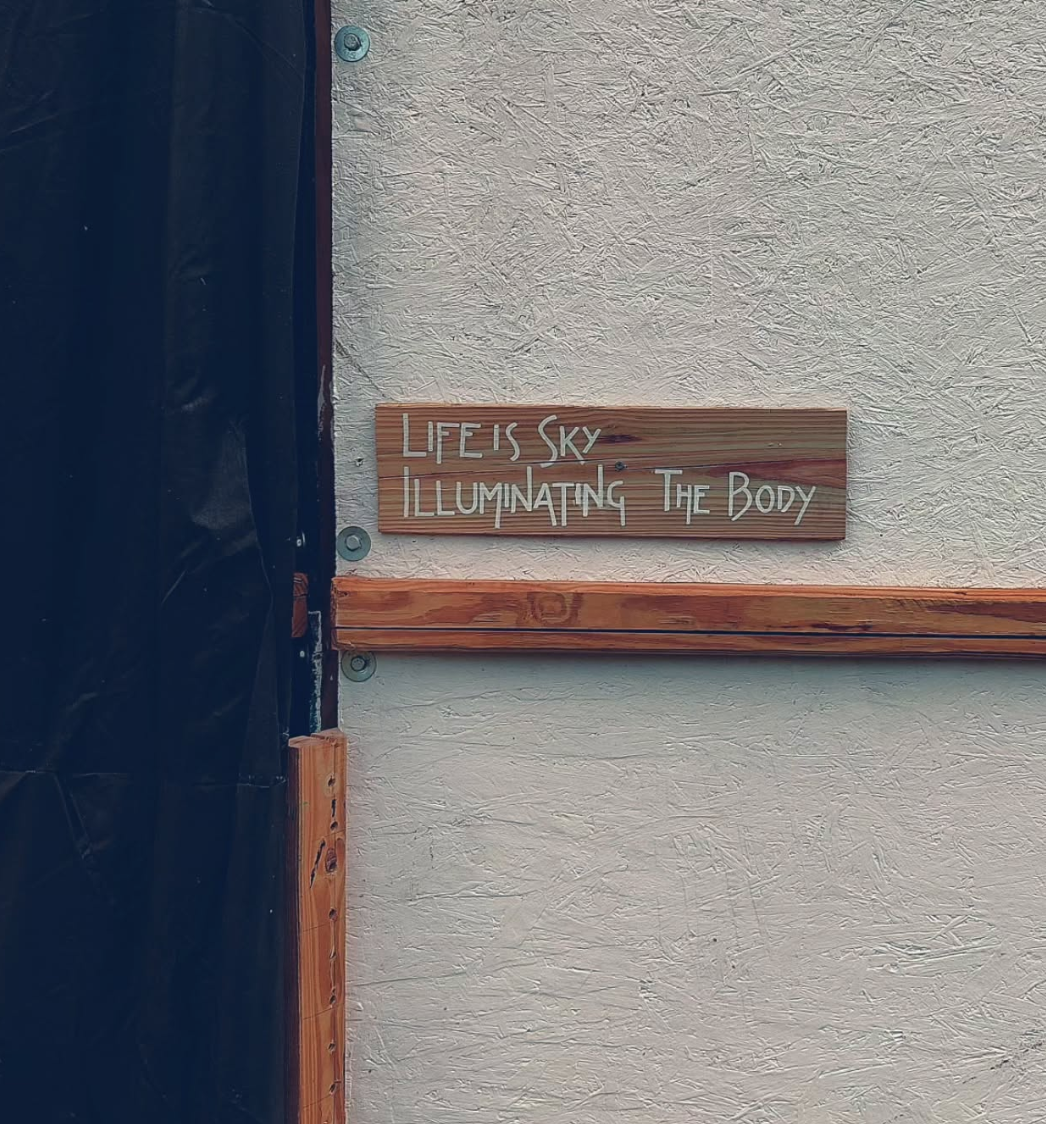 Life is Sky
Illuminating The Body